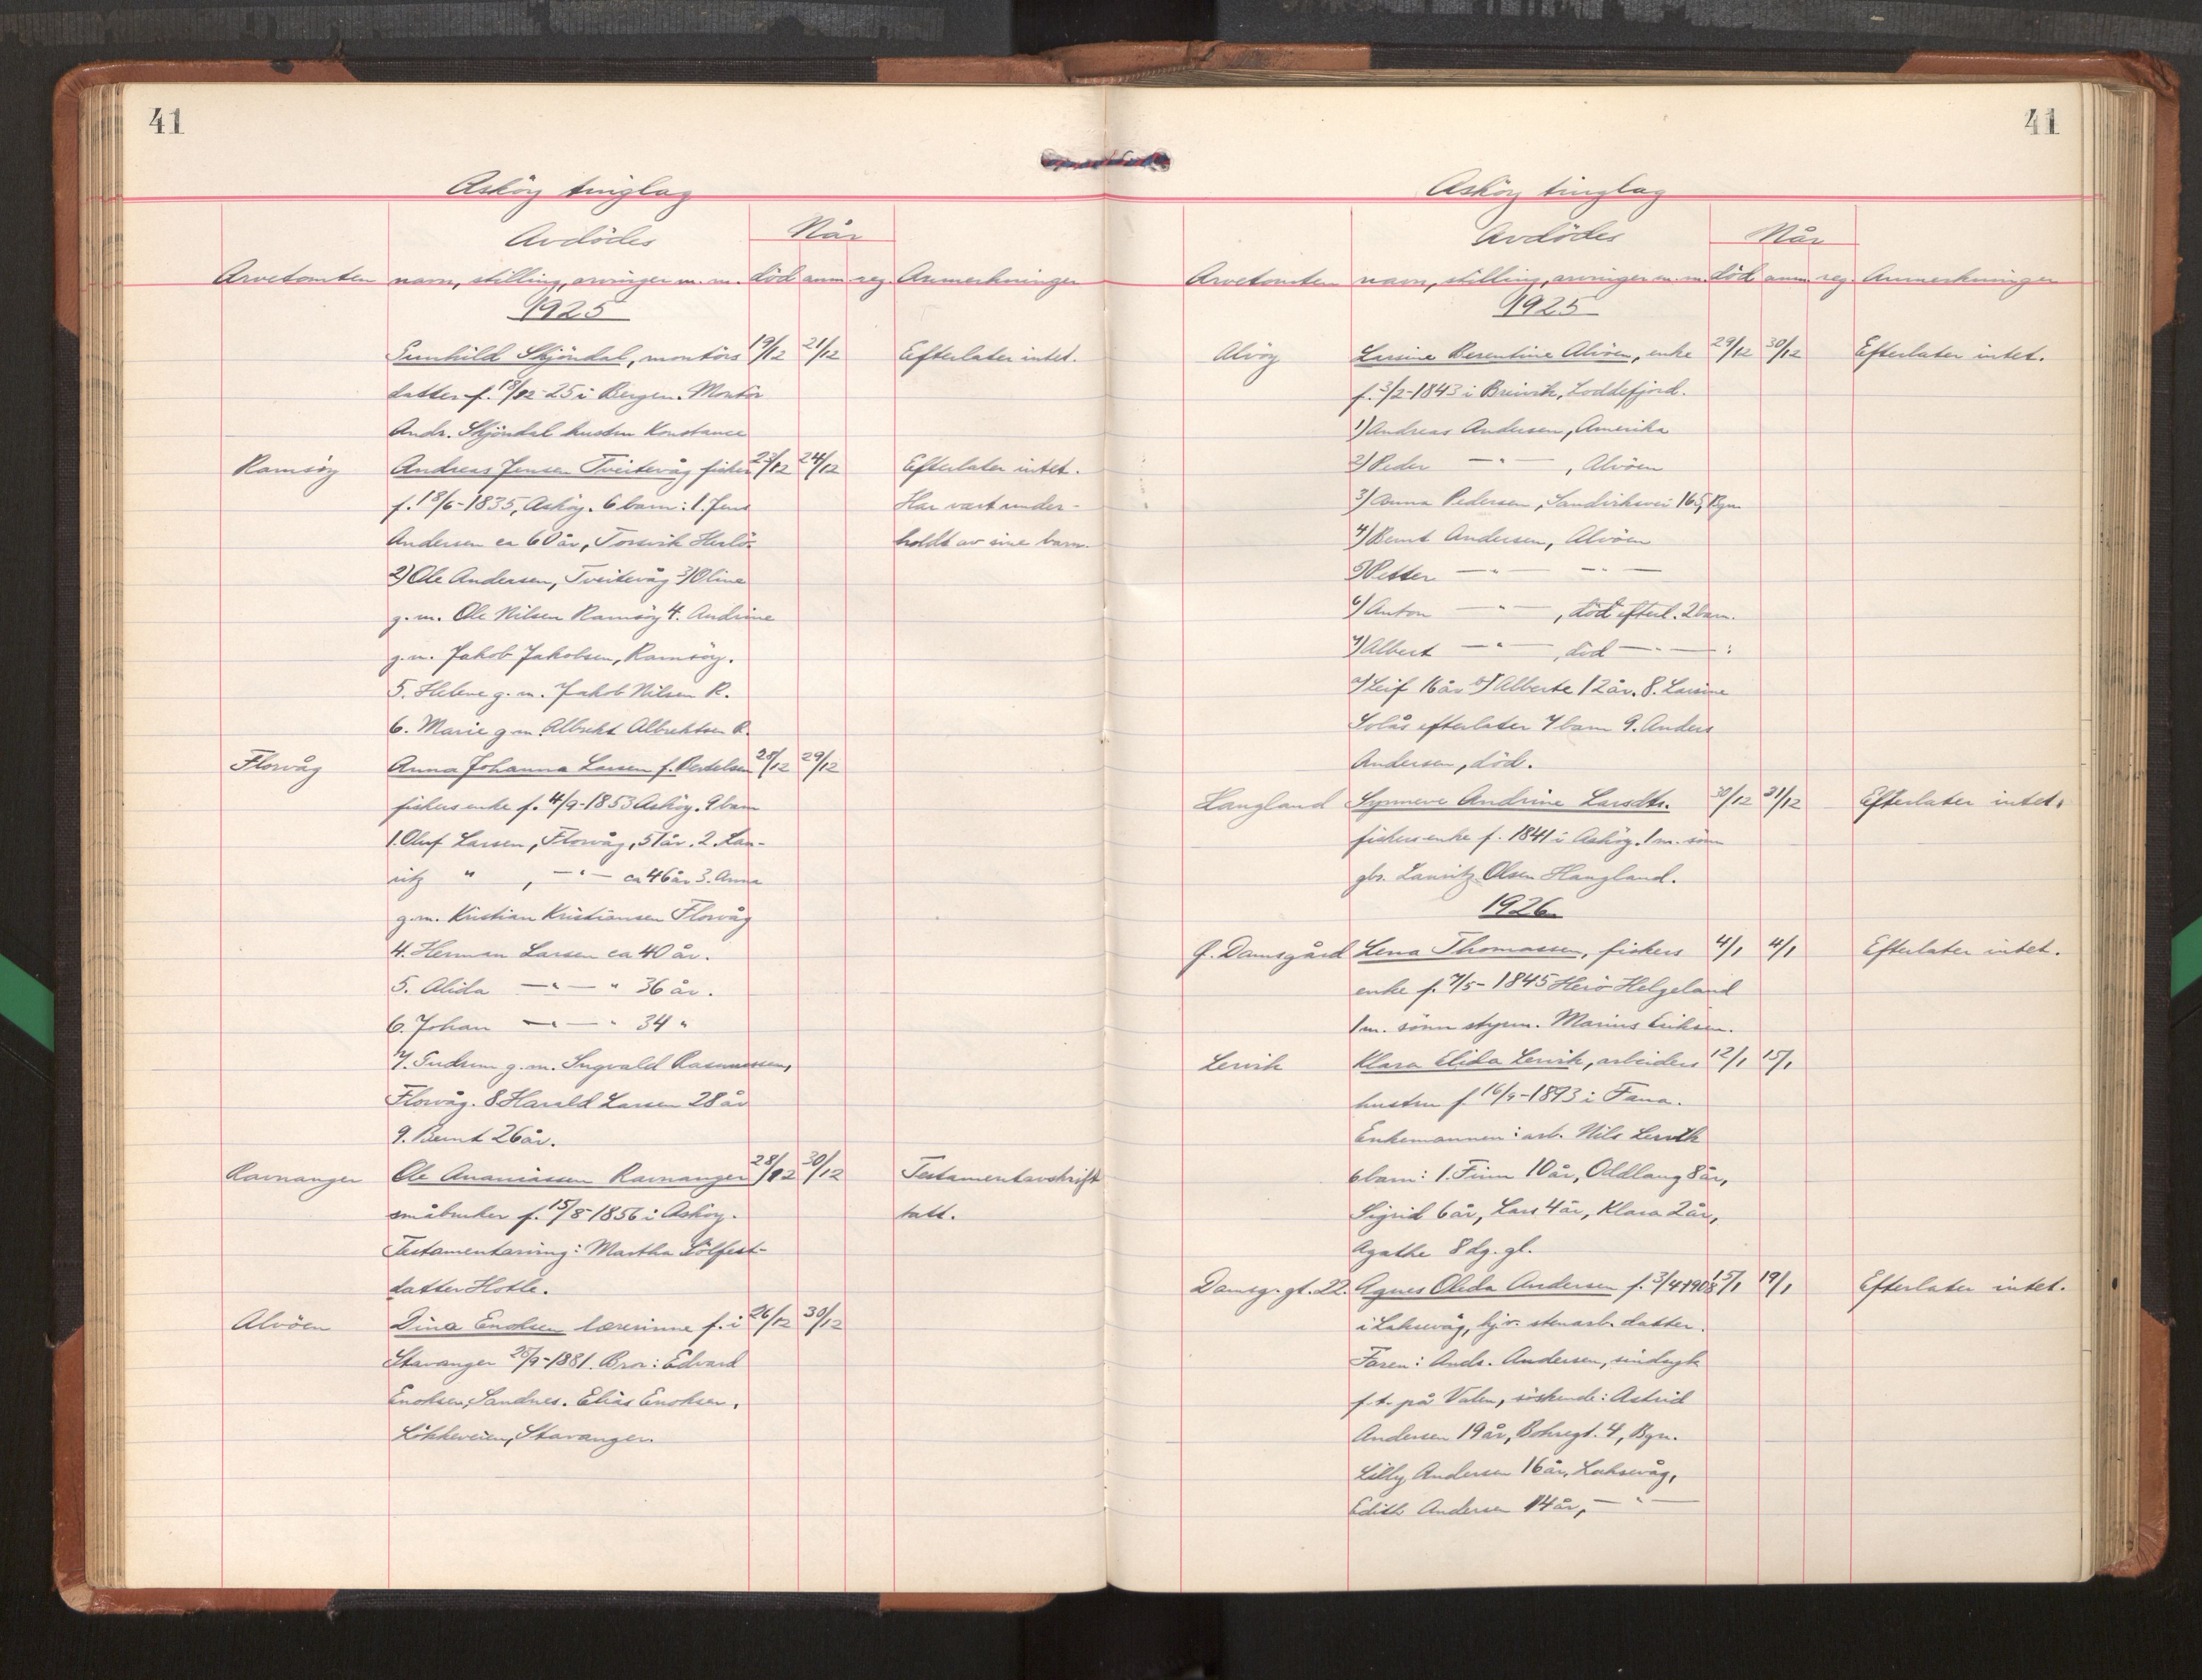 41
Asköy tinglag
Avdödes
Når
Arvetomten navn, stilling, arvinger m.m. död anm. reg. Anmerkninger
1925
Gunhild Skjöndal, montörs 19/12 21/12 Efterlater intet.
datter f. 18/12-25 i Bergen. Montör
Andr. Skjöndal hustru Konstance
Ramsöy Andreas Jensen Tveitevåg fisker 23/12 24/12 Efterlater intet.
f. 18/6-1835, Asköy. 6 barn: 1. Jens Har vært under-
Andersen ca 60 år, Torsvik Herlö. holdt av sine barn.
2) Ole Andersen, Tveitevåg 3) Oline
g.m. Ole Nilsen Ramsöy 4. Andrine
g.m. Jakob Jakobsen, Ramsöy.
5. Helene g.m. Jakob Nilsen R.
6. Marie g.m. Albrekt Albrektsen R.
Florvåg Anna Johanna Larsen f. Bertelsen 28/12 29/12
fiskers enke f. 4/9-1853 Asköy. 9 barn
1. Oluf Larsen, Florvåg, 51 år. 2. Lau-
ritz " , - " - ca 46 år 3. Anna
g.m. Kristian Kristiansen Florvåg
4. Herman Larsen ca 40 år.
5. Alida - " - " 36 år.
6. Johan - " - " 34 "
7. Gudrun g.m. Ingvald Rasmussen,
Florvåg. 8. Harald Larsen 28 år
9. Bernt 26 år.
Ravnanger Ole Ananiassen Ravnanger 28/12 30/12 Testamentavskrift
småbruker f. 15/8-1856 i Asköy. tatt.
Testamentarving: Martha Sölfest-
datter Hotle.
Alvöen Dina Enoksen lærerinne f. i 26/12 30/12
Stavanger 25/9-1881. Bror: Edvard
Enoksen, Sandnes. Elias Enoksen,
Lökkeveien, Stavanger.
41
Asköy tinglag
Avdödes
Når
Arvetomten navn, stilling, arvinger m.m. död anm. reg. Anmerkninger
1925
Alvöy Larsine Berentine Alvöen, enke 29/12 30/12 Efterlater intet.
f. 3/2-1843 i Breivik, Loddefjord.
1) Andreas Andersen, Amerika
2) Peder - " - , Alvöen
3) Anna Pedersen, Sandviksvei 165, Bgn.
4) Bernt Andersen, Alvöen
5) Petter - " - - " -
6) Anton - " - , död efterl. 2 barn.
7) Albert - " - , död - " - :
a) Leif 16 år b) Alberte 12 år. 8. Larsine
Solås efterlater 7 barn 9. Anders
Andersen, död.
Hangland Synneve Andrine Larsdtr. 30/12 31/12 Efterlater intet.
fiskers enke f. 1841 i Asköy. 1 m. sönn
gbr. Lauritz Olsen Hangland.
1926
Damsgård Lena Thomassen, fiskers 4/1 4/1 Efterlater intet.
enke f. 7/5-1845 Herö Helgeland
1 m. sönn styrm. Marius Eriksen.
Lervik Klara Elida Lervik, arbeiders 12/1 15/1
hustru f. 16/9-1893 i Fana.
Enkemannen: arb. Nils Lervik
6 barn: 1. Finn 10 år, Oddlaug 8 år,
Sigrid 6 år, Lars 4 år, Klara 2 år,
Agathe 8 dg. gl.
Damsg. gt. 22. Agnes Oleda Andersen f. 3/4-1908 15/1 19/1 Efterlater intet.
i Laksevåg, hjv. stenarb. datter.
Faren: Andr. Andersen, sindsyk
f.t. på Valen, söskende: Astrid
Andersen 19 år, Bohregt. 4, Bgn.
Lilly Andersen 16 år, Laksevåg,
Edith Andersen 14 år, - " -